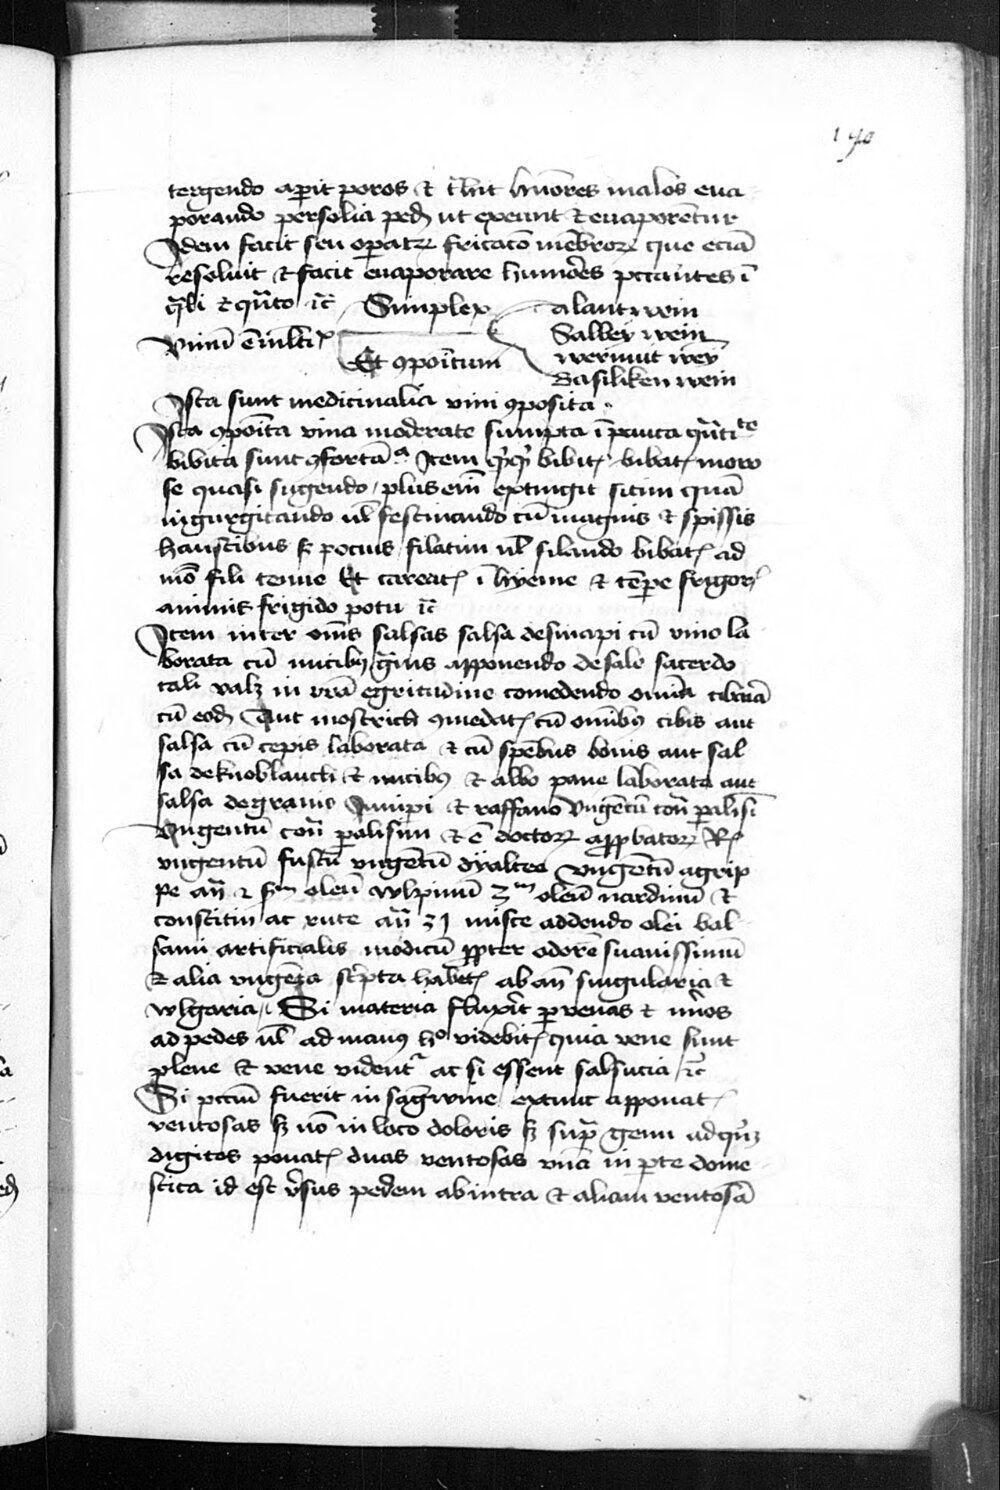 190
tergendo aperit poros et trahit humores malos eua
porando per solia pedum ut exeunt et euaporentur
Idem facit seu operatur fricacio membrorum que eciam
resoluit et facit euaporare humores peccantes in
quali et quanto etc Simplex alant wein
Vinum est multiplex Salbey wein
Et compositum wermut wey
Basiliken wein
Ista sunt medicinalia vini composita
Ista composita vina moderate sumpta in pauca quantitate
bibita sunt confortancia Item quicumque bibitur bibatur moro
se quasi sugendo plus enim extingit sitim quam
ingurgitando uel festinando cum magnis et spissis
haustibus sed pocius filatim uel filando bibatur ad
modum fili tenue Et careatur in hyeme et tempore frigoris
animis frigido potu etc
Item inter omnes salsas salsa de sinapi cum vino la
borata cum nucibus apponendo de sale sacerdo
tali valet in vestra egritudine comedendo omnia cibaria
cum eodem Aut mostrich comedatur cum omnibus cibis aut
salsa cum cepis laborata et cum speciebus bonis aut sal
sa de knoblauch et nucibus et albo pane laborata aut
salsa de granis Juniperi et raffano Vngentum contra paralisim
Vngentum contra paralisim et est doctorum approbatorum Rx
vngentum fuscum vngentum dyaltee vngentum agrip
pe ana oleum wlpinum oleum nardinum et
ac rute ana misce addendo olei bal
sami artificialis modicum propter odorem suauissimum
et alia vngenta scripta habetur singularia et
wlgaria Si materia fluxerit per venas et neruos
ad pedes uel ad manus hoc videbitur quia vene sunt
plene et vene videntur ac si essent salsucia etc
Si peccatum fuerit in sangwine extunc apponat
ventosas sed non in loco doloris sed supra genu ad quatuor
digitos ponatur duas ventosas vnam in parte dome
stica id est versus pedem ab intra et aliam ventosam